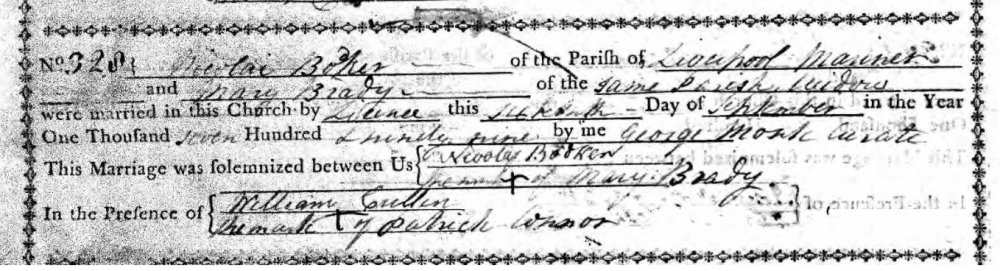 No. 328 { Nicolai Böker of the Parish of Liverpool Mariner
and Mary Brady of the same Parish Widow
were married in this Church by Licence this Day of September in the Year
One Thousand seven Hundred & ninety nine by me George Monk Curate
This Marriage was solemnized between Us { Nicolas Böcker
the mark + of Mary Brady
In the Presence of { William
the mark + of Patrick Connor